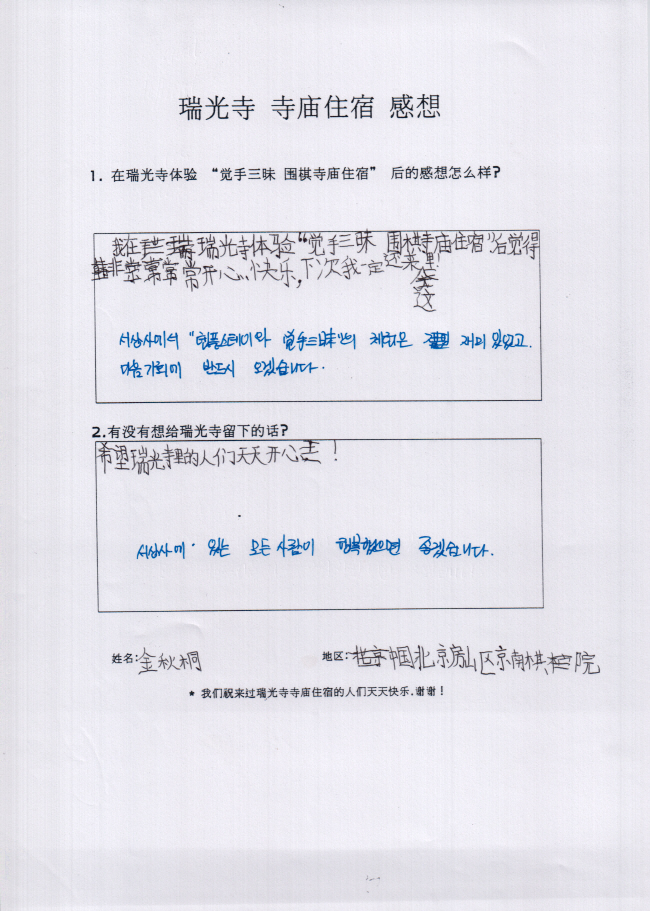 瑞光寺 寺庙住宿 感想
1. 在瑞光寺体验 “觉手三昧 围棋寺庙住宿” 后的感想怎么样?
我在瑞光寺体验“觉手三昧 围棋寺庙住宿”后觉得
非常常开心,快乐,下次我一定还来
这里!
"템플스테이와 觉手三昧"의 체험은 재미있었고.
다음기회에 반드시 오겠습니다.
2.有没有想给瑞光寺留下的话?
希望瑞光寺里的人们天天开心!
있는 모든 사람이 행복했으면 좋겠습니다.
姓名:金秋桐
地区:中国北京房山区京南棋院
* 我们祝来过瑞光寺寺庙住宿的人们天天快乐.谢谢!